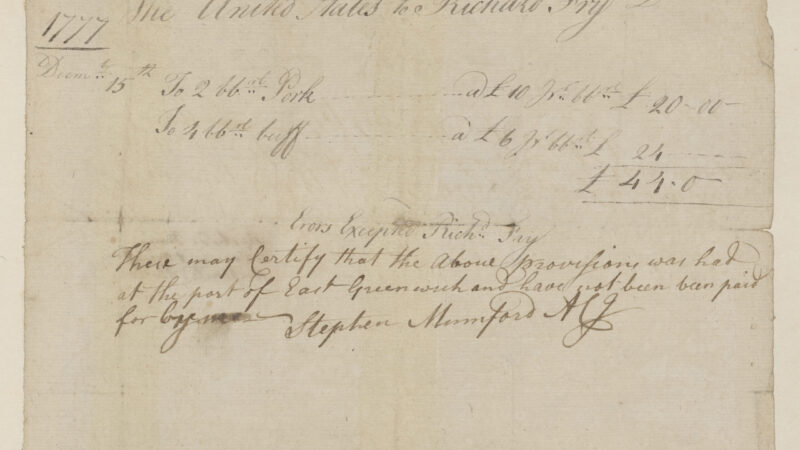 The United States to Richard Fry Dr
1777
Decem br 15th To 2 bbrls Pork a £ 10 pr bbrl £ 20-00-
To 4 bbrls beeff a £ 6 pr bbrl £ 24
£ 44-0
Erors Excepted Richd Fry
These may Certify that the Above provisions was had
at the port of East Greenwich and have not been been paid
for by me Stephen Mumford ACI